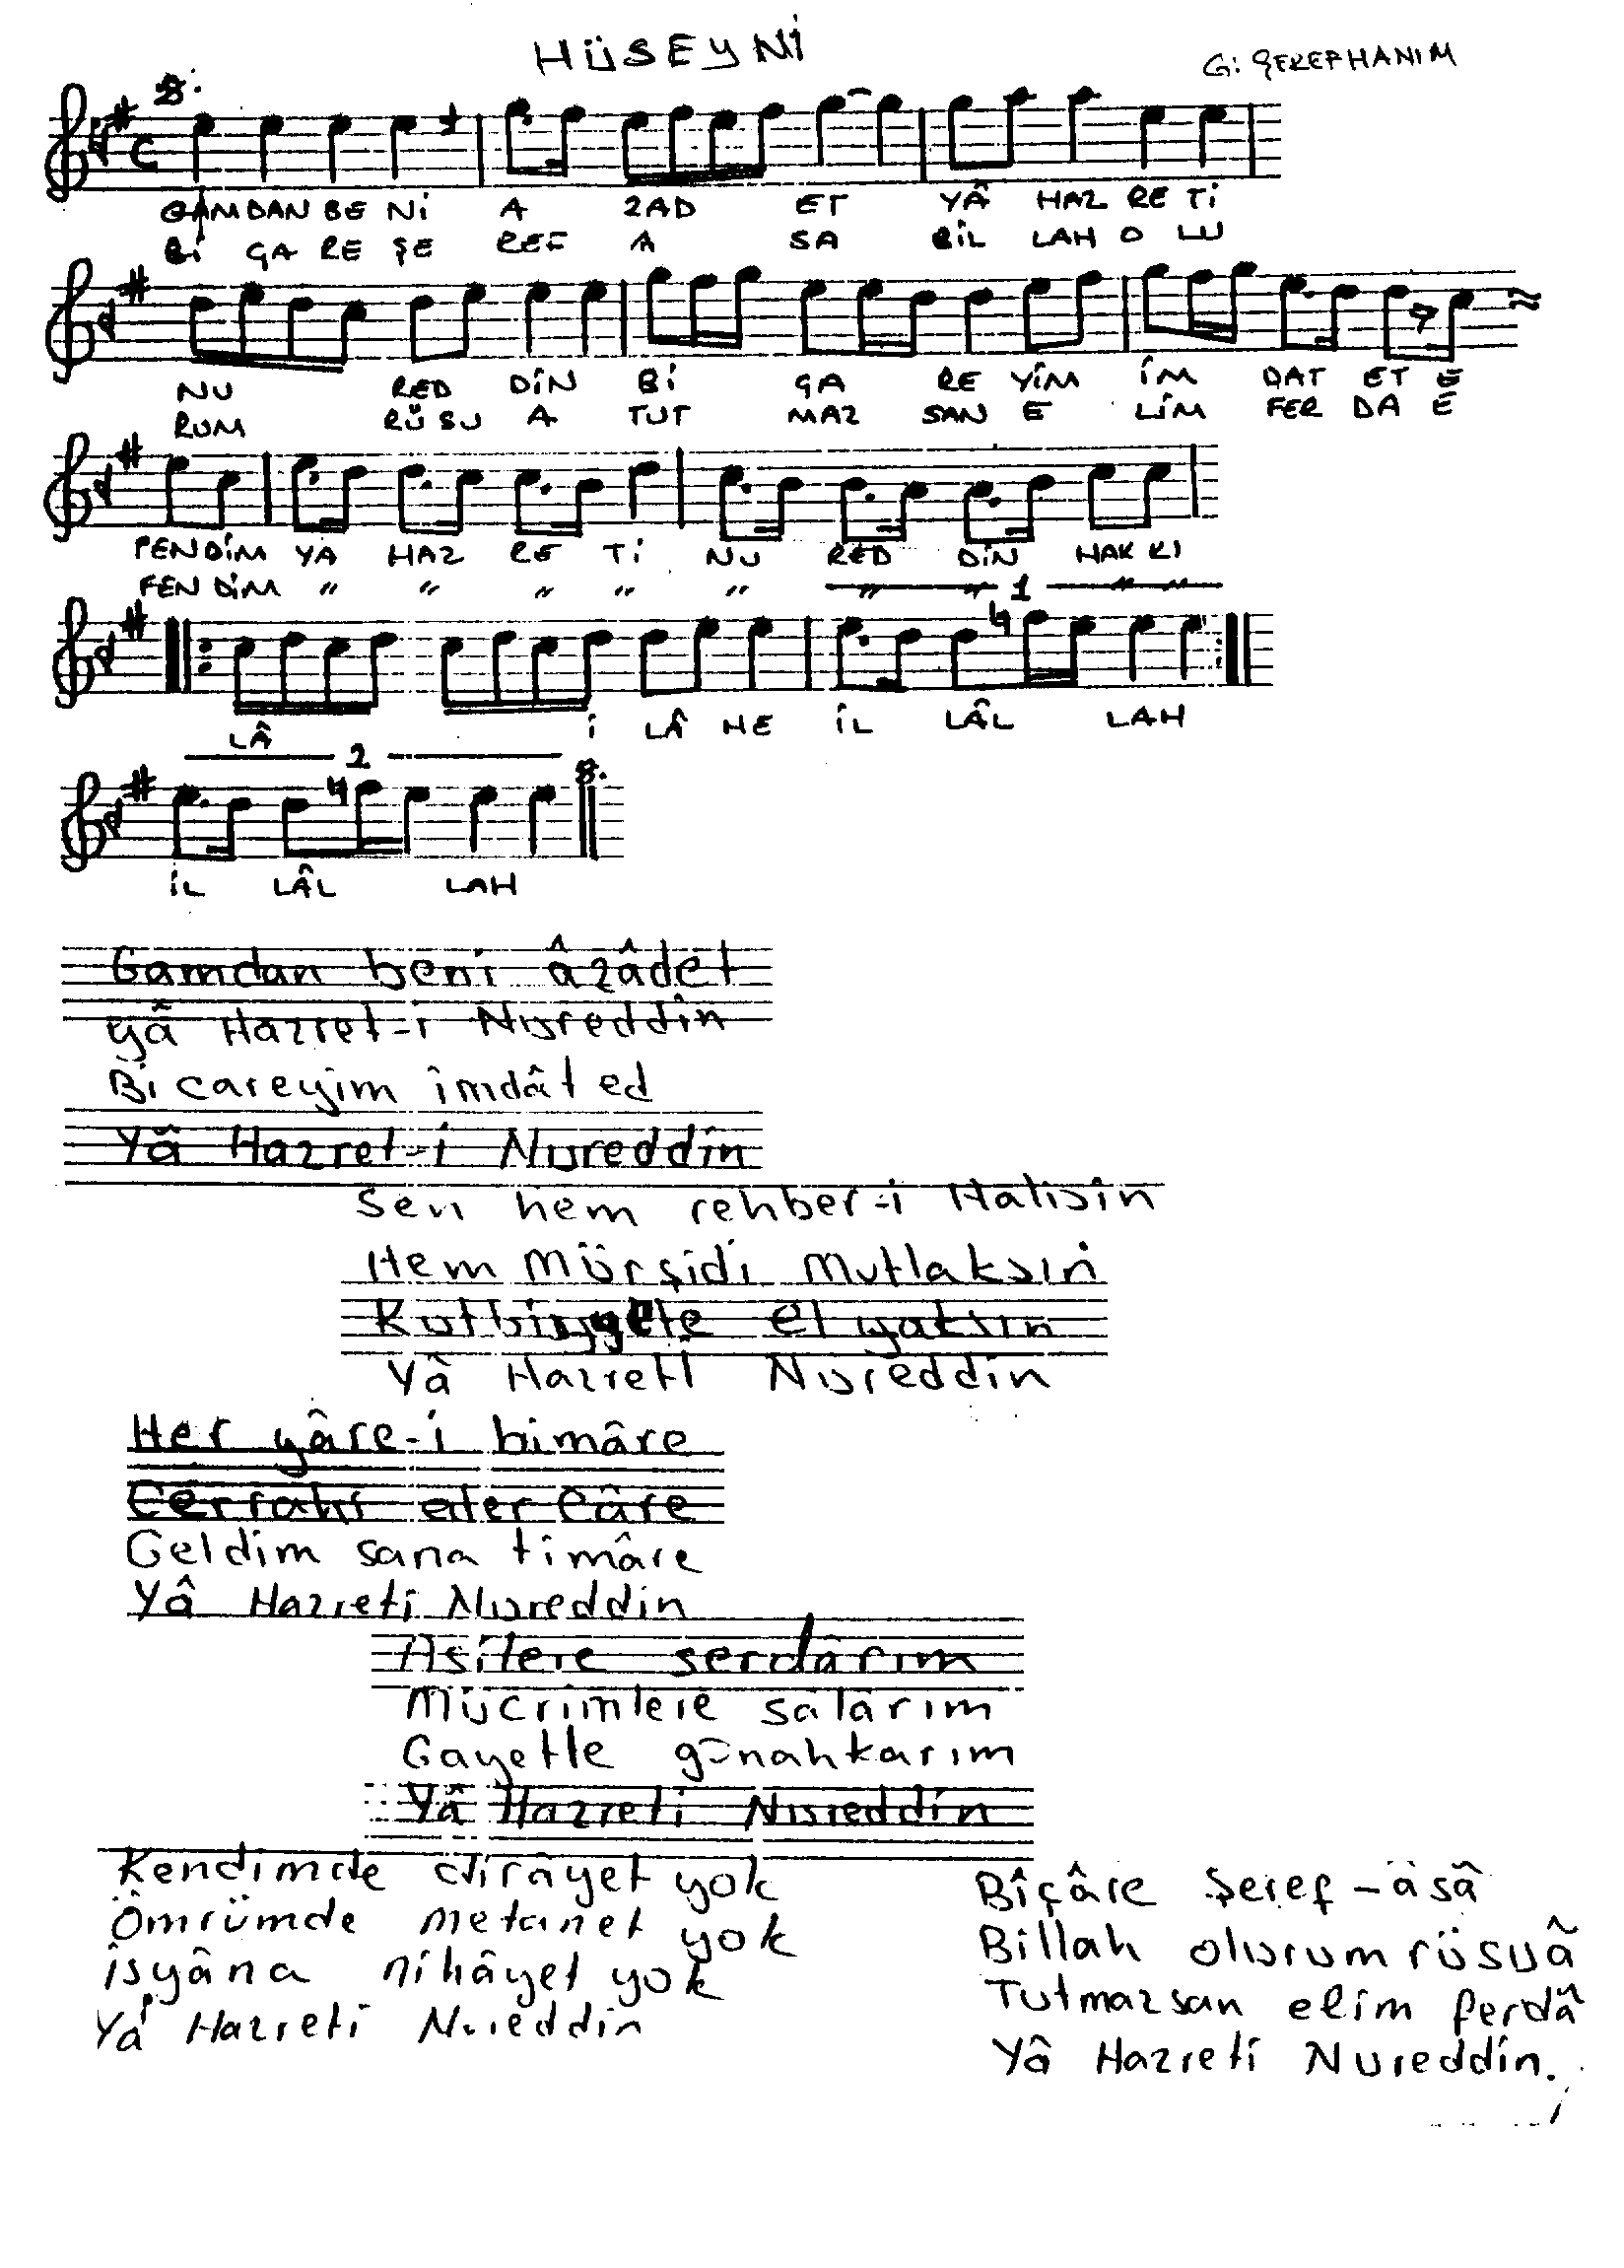 HÜSEYNİ
G: ŞEREFHANIM
GAMDAN BE Nİ A ZAD ET YÂ HAZ RE Tİ
Bİ ÇA RE ŞE REF A SA BİL LAH O LU
NU RED DİN Bİ ÇA RE YİM İM DAT ET E
RUM RÜ SU A TUT MAZ SAN E LİM FER DA E
FENDİM YA HAZ RE Tİ NU RED DİN HAK KI
FEN DİM " " " " " " " " "
1
LÂ İ LÂ HE İL LÂL LAH
2
İL LÂL LAH
Gamdan beni âzâdet
yâ Hazret-i Nureddin
Bi careyim imdât ed
Yâ Hazret-i Nureddin
Sen hem rehber-i Halisin
Hem Mürşidi Mutlaksın
Kutbiyyete elyaksın
Yâ Hazreti Nureddin
Her yâre-i bimâre
Cerrahi eder Câre
Geldim sana timâre
Yâ Hazreti Nureddin
Asilere serdârım
Mücrimlere salarım
Gayetle günahkarım
Yâ Hazreti Nureddin
Kendimde dirâyet yok
Ömrümde metanet yok
İsyâna nihâyet yok
Yâ Hazreti Nureddin
Bîçâre Şeref-âsâ
Billah olurum rüsuâ
Tutmazsan elim ferdâ
Yâ Hazreti Nureddin.